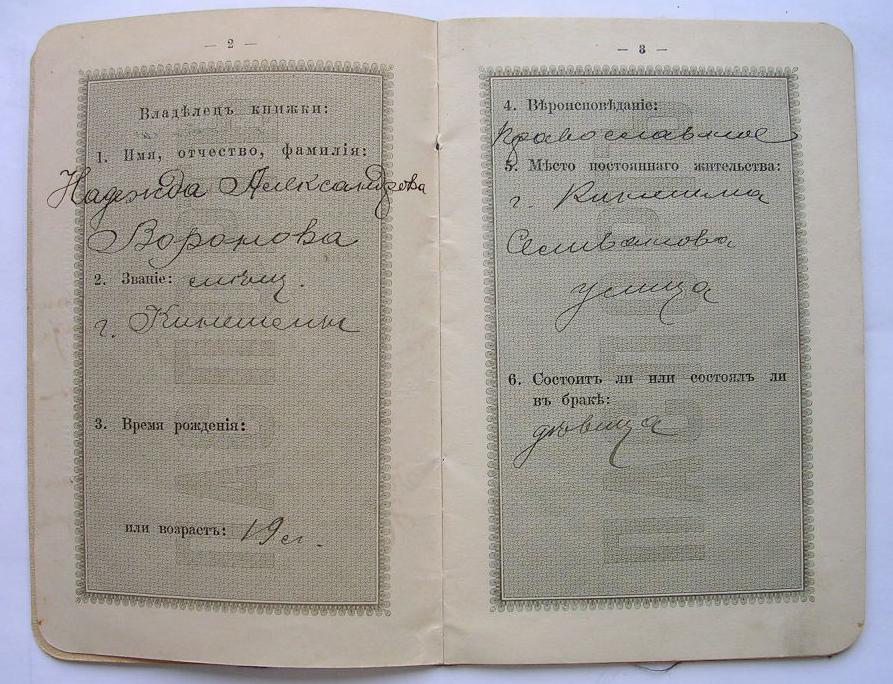 — 2 —
Владѣлецъ книжки:
1. Имя, отчество, фамилія:
Надежда Александрова
Воронова
2. Званіе: мѣщ.
г. Кинешмы
3. Время рожденія:
или возрастъ: 19 л.
— 3 —
4. Вѣроисповѣданіе:
Православное
5. Мѣсто постояннаго жительства:
г. Кинешма
Селиванова
улица
6. Состоитъ ли или состоялъ ли
въ бракѣ:
дѣвица
ПАСПОРТ
ПАСПОРТ